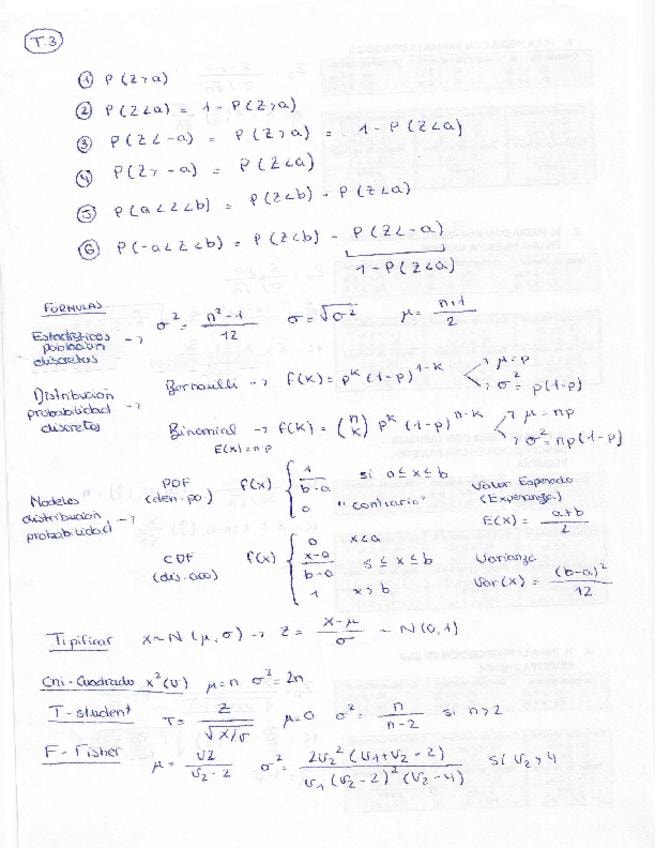 T.3
① P(Z>a)
② P(Z<a) = 1 - P(Z>a)
③ P(Z<-a) = P(Z>a) = 1 - P(Z<a)
④ P(Z>-a) = P(Z<a)
⑤ P(a<Z<b) = P(Z<b) - P(Z<a)
⑥ P(-a<Z<b) = P(Z<b) - P(Z<-a)
1 - P(Z<a)
FORMULAS
Estadísticos población discretas -> σ² = (n²-1)/12 σ = √σ² μ = (n+1)/2
Distribución probabilidad discretos ->
Bernoulli -> f(K) = p^K (1-p)^(1-K) μ = p σ² = p(1-p)
Binomial -> f(K) = (n K) p^K (1-p)^(n-K) μ = np σ² = np(1-p)
E(x) = n·p
Modelos distribución probabilidad ->
PDF (den. po) f(x) { 1/(b-a) si a ≤ x ≤ b
0 "contrario"
Valor Esperado (Esperanza) E(x) = (a+b)/2
CDF (dis. aco) f(x) { 0 x<a
(x-a)/(b-a) s ≤ x ≤ b
1 x>b
Varianza Var(x) = (b-a)²/12
Tipificar x~N(μ,σ) -> Z = (x-μ)/σ ~ N(0,1)
Chi-Cuadrado x²(v) μ = n σ² = 2n
T-student T = Z/√(x/v) μ = 0 σ² = n/(n-2) si n>2
F-Fisher μ = v2/(v2-2) σ² = 2v2²(v1+v2-2)/(v1(v2-2)²(v2-4)) si v2>4